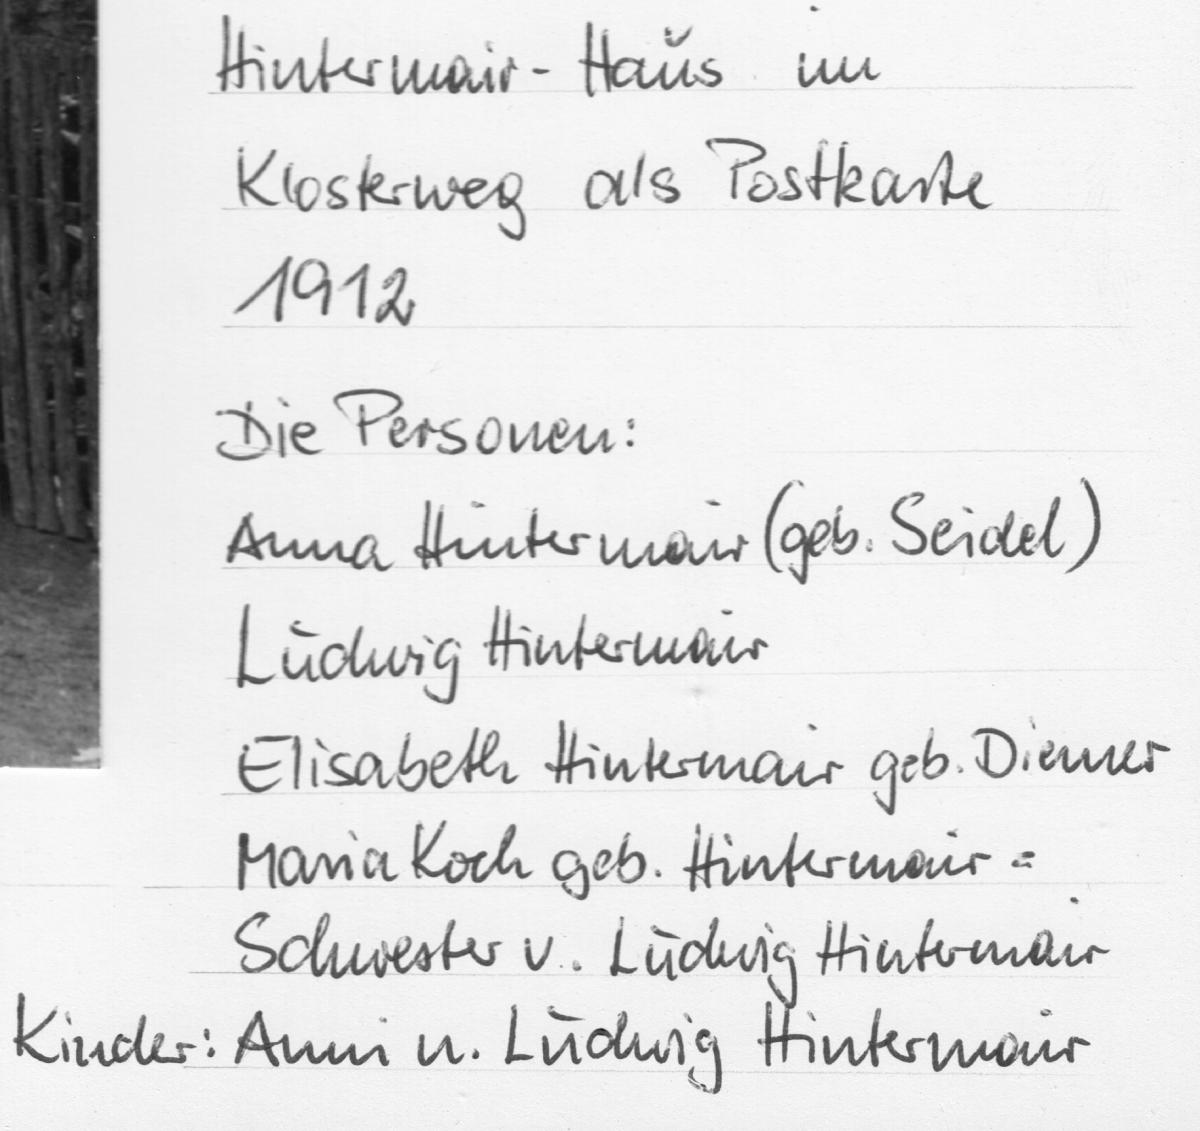 Hintermair-Haus im
Klosterweg als Postkarte
1912
Die Personen:
Anna Hintermair (geb. Seidel)
Ludwig Hintermair
Elisabeth Hintermair geb. Diemer
Maria Koch geb. Hintermair =
Schwester v. Ludwig Hintermair
Kinder: Anni u. Ludwig Hintermair